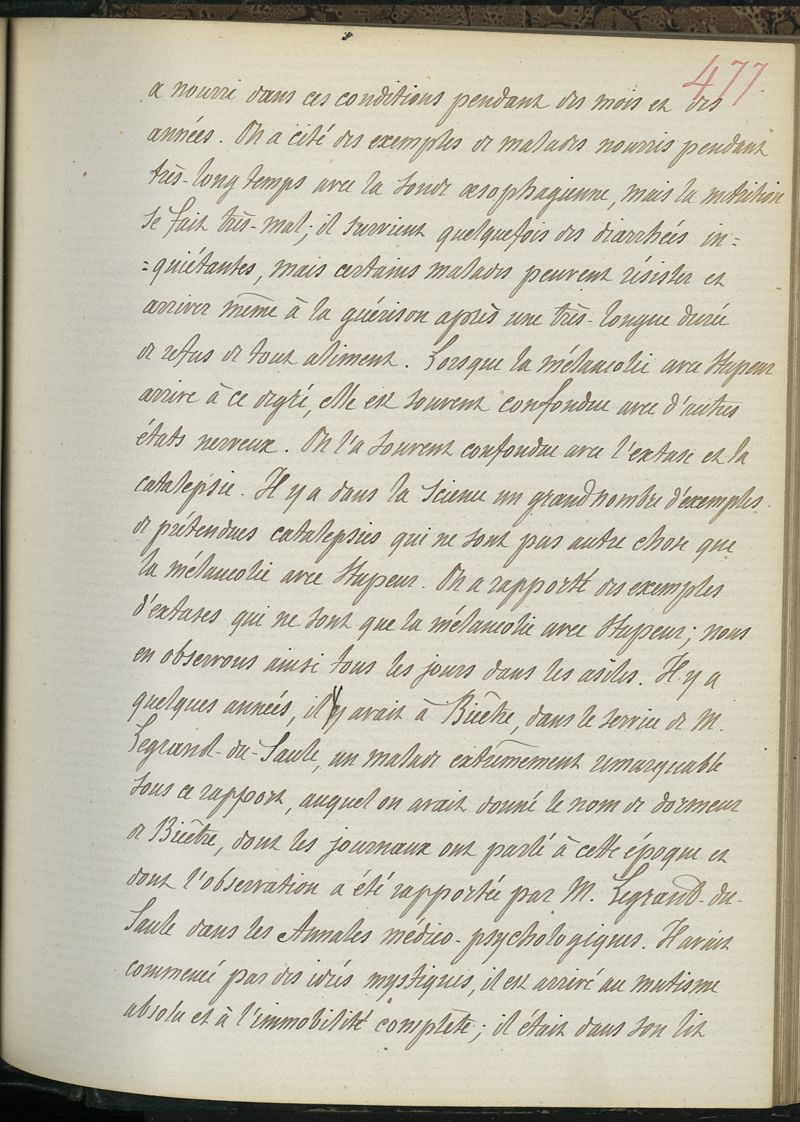 477.
a nourri dans ces conditions pendant des mois et des
années. On a cité des exemples de malades nourris pendant
très-long temps avec la sonde œsophagienne, mais la nutrition
se fait très-mal; il survient quelquefois des diarrhées in=
=quiétantes, mais certains malades peuvent résister et
arriver même à la guérison après une très-longue durée
de refus de tout aliment. Lorsque la mélancolie avec stupeur
arrive à ce degré, elle est souvent confondue avec d'autres
états nerveux. On l'a souvent confondue avec l'extase et la
catalepsie. Il y a dans la science un grand nombre d'exemples
de prétendues catalepsies qui ne sont pas autre chose que
la mélancolie avec stupeur. On a rapporté des exemples
d'extases qui ne sont que la mélancolie avec stupeur; nous
en observons ainsi tous les jours dans les asiles. Il y a
quelques années, il y avait à Bicêtre, dans le service de M.
Legrand-du-Saule, un malade extrêmement remarquable
sous ce rapport, auquel on avait donné le nom de dormeur
de Bicêtre, dont les journaux ont parlé à cette époque et
dont l'observation a été rapportée par M. Legrand-du-
Saule dans les Annales médico-psychologiques. Il avait
commencé par des idées mystiques, il est arrivé au mutisme
absolu et à l'immobilité complète; il était dans son lit